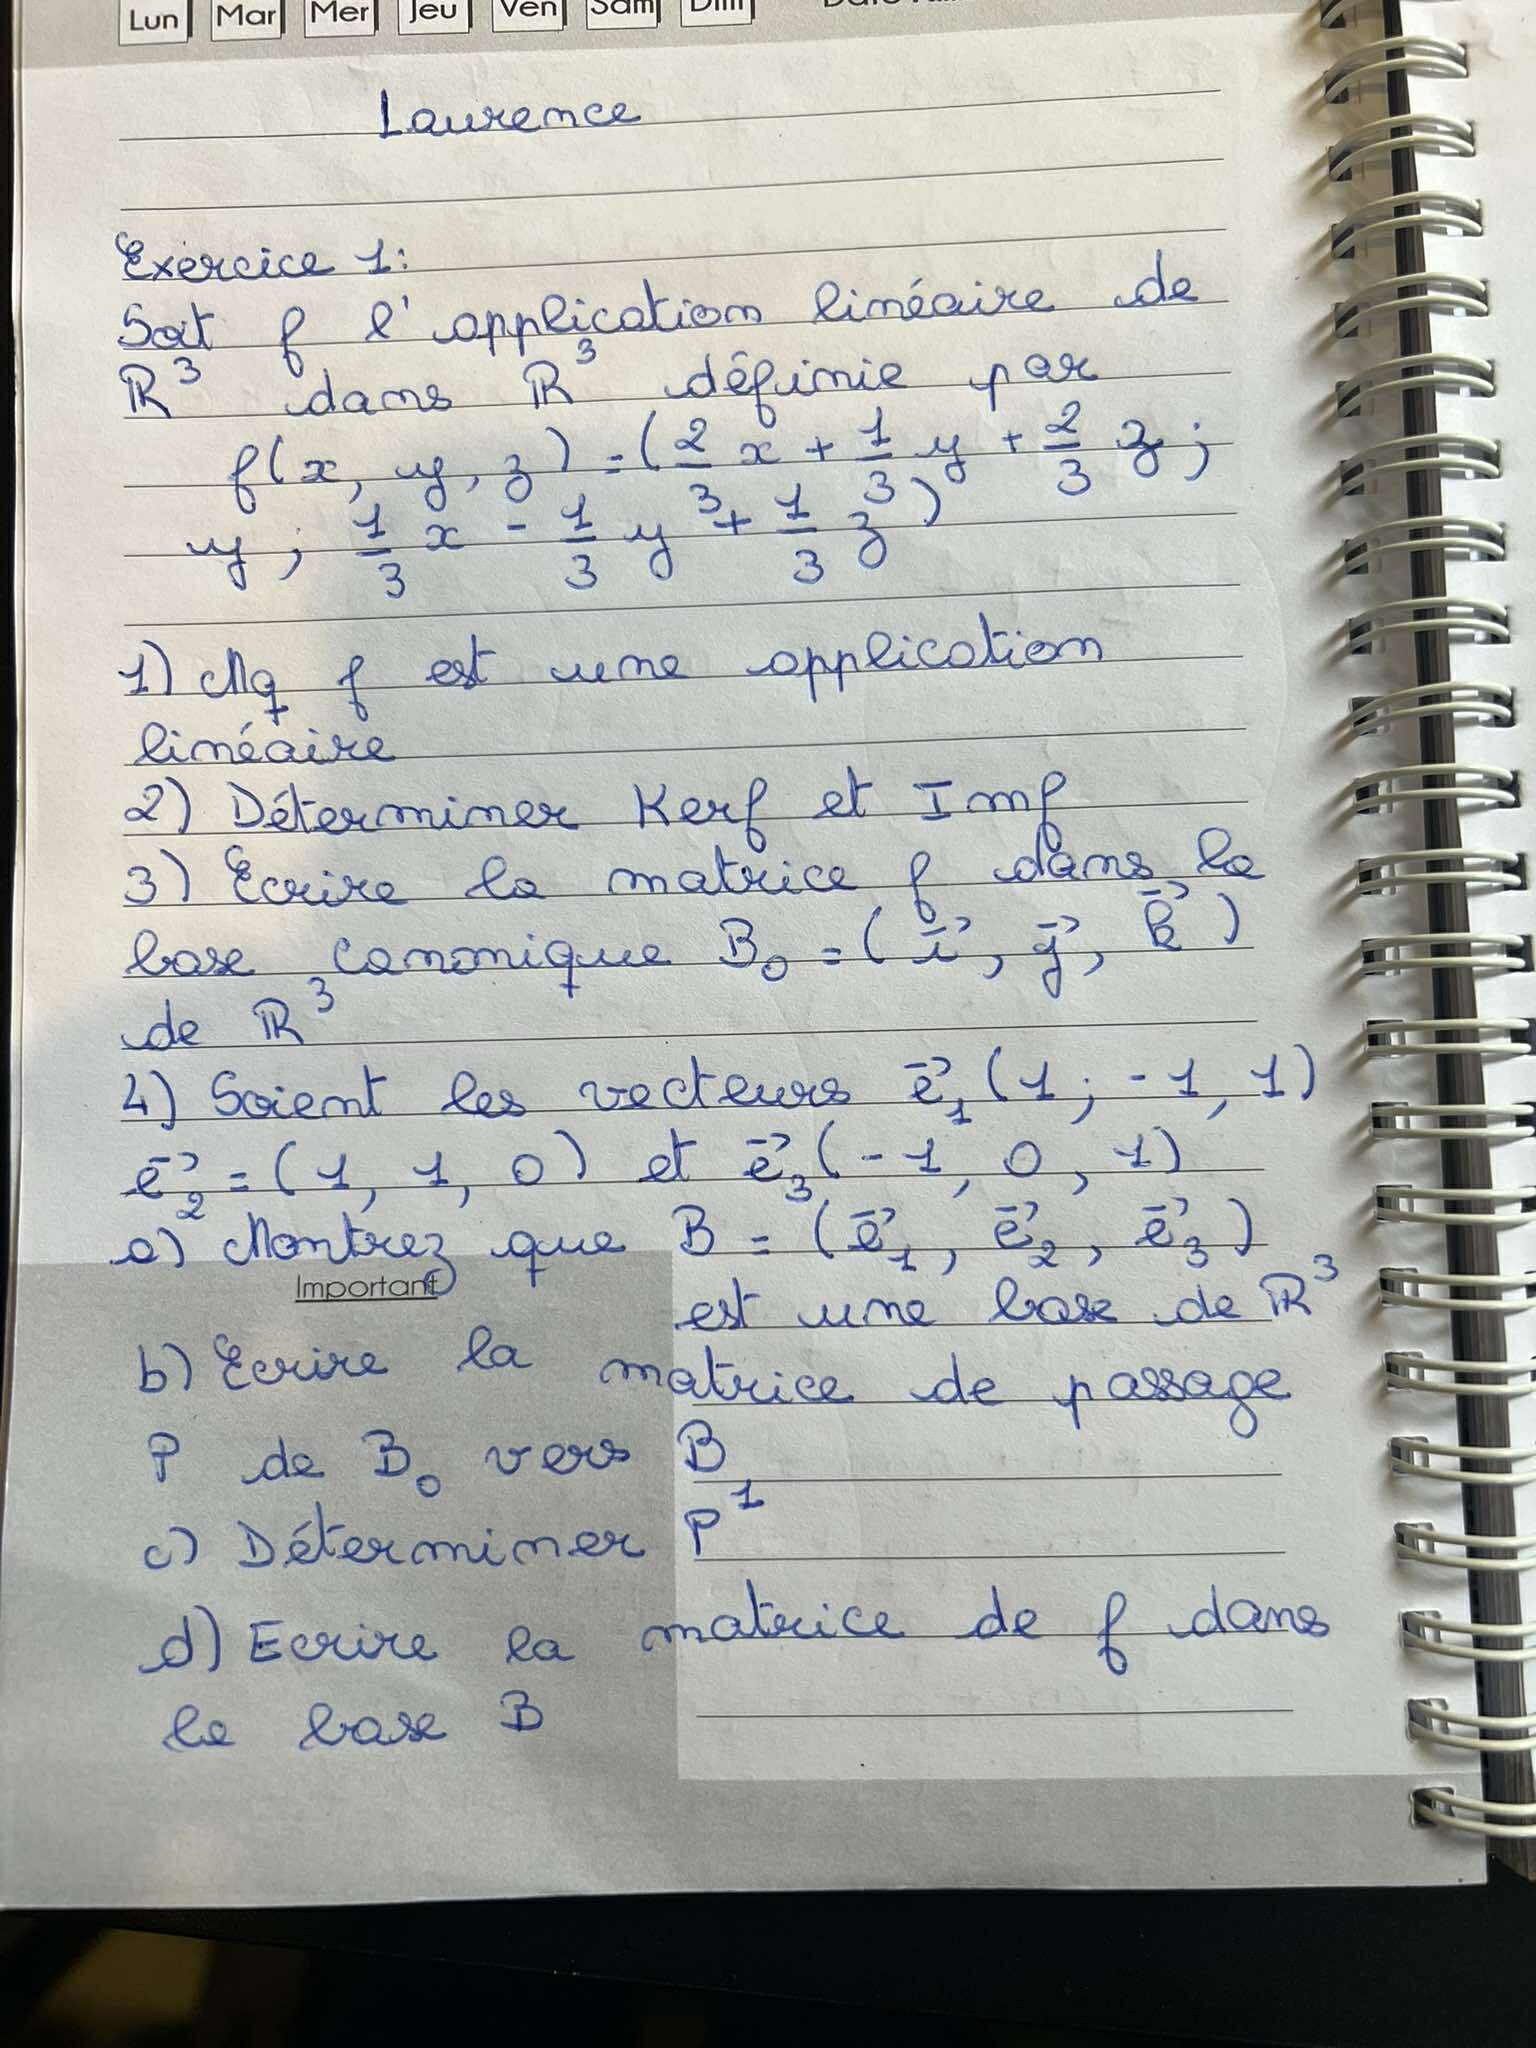 Lun Mar Mer Jeu Ven Sam Dim
Laurence
Exercice 1:
Soit f l'application linéaire de
ℝ³ dans ℝ³ définie par
f(x, y, z) = (2/3 x + 1/3 y + 2/3 z ;
y ; 1/3 x - 1/3 y + 1/3 z)
1) Mq f est une application
linéaire
2) Déterminer Kerf et Imf
3) Ecrire la matrice f dans la
base canonique B₀ = (i⃗, j⃗, k⃗)
de ℝ³
4) Soient les vecteurs e⃗₁ (1 ; -1, 1)
e⃗₂ = (1, 1, 0) et e⃗₃ (-1, 0, 1)
a) Montrez que B = (e⃗₁, e⃗₂, e⃗₃)
Important
est une base de ℝ³
b) Ecrire la matrice de passage
P de B₀ vers B
c) Déterminer P¹
d) Ecrire la matrice de f dans
la base B